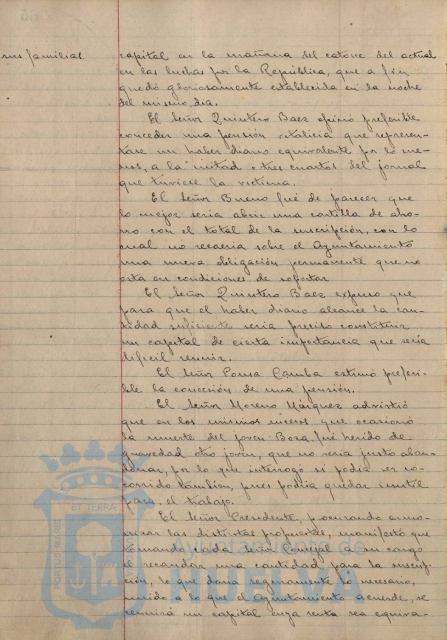 sus familias.
capital en la mañana del catorce del actual
en las luchas por la República, que a fin
quedó gloriosamente establecida en la noche
del mismo dia.
El Señor Quintero Baez opinó preferible
conceder una pensión vitalicia que represen-
tase un haber diario equivalente por lo me-
nos, a la mitad o tres cuartos del jornal
que tuviese la victima.
El Señor Bueno fué de parecer que
lo mejor seria abrir una cartilla de aho-
rro con el total de la suscripción, con lo
cual no recaeria sobre el Ayuntamiento
una nueva obligación permanente que no
está en condiciones de soportar
El Señor Quintero Baez expuso que
para que el haber diario alcance la can-
tidad suficiente seria preciso constituir
un capital de cierta importancia que seria
dificil reunir.
El Señor Ponce Camba estimó preferi-
ble la concesión de una pensión.
El Señor Moreno Márquez advirtió
que en los mismos sucesos que ocasionó
la muerte del joven Boza, fué herido de
gravedad otro joven, que no seria justo aban-
donar, por lo que interrogó si podia ser so-
corrido tambien, pues podria quedar inutil
para el trabajo.
El Señor Presidente, procurando armo-
nizar las distintas propuestas, manifestó que
tomando cada Señor Concejal a su cargo
el recaudar una cantidad para la suscrip-
ción, lo que daria seguramente lo necesario,
unido a lo que el Ayuntamiento acuerde, se
reunirá un capital cuya renta sea equiva-
PORTUS MARIS
ET TERRÆ
Ayuntamiento de
HUELVA